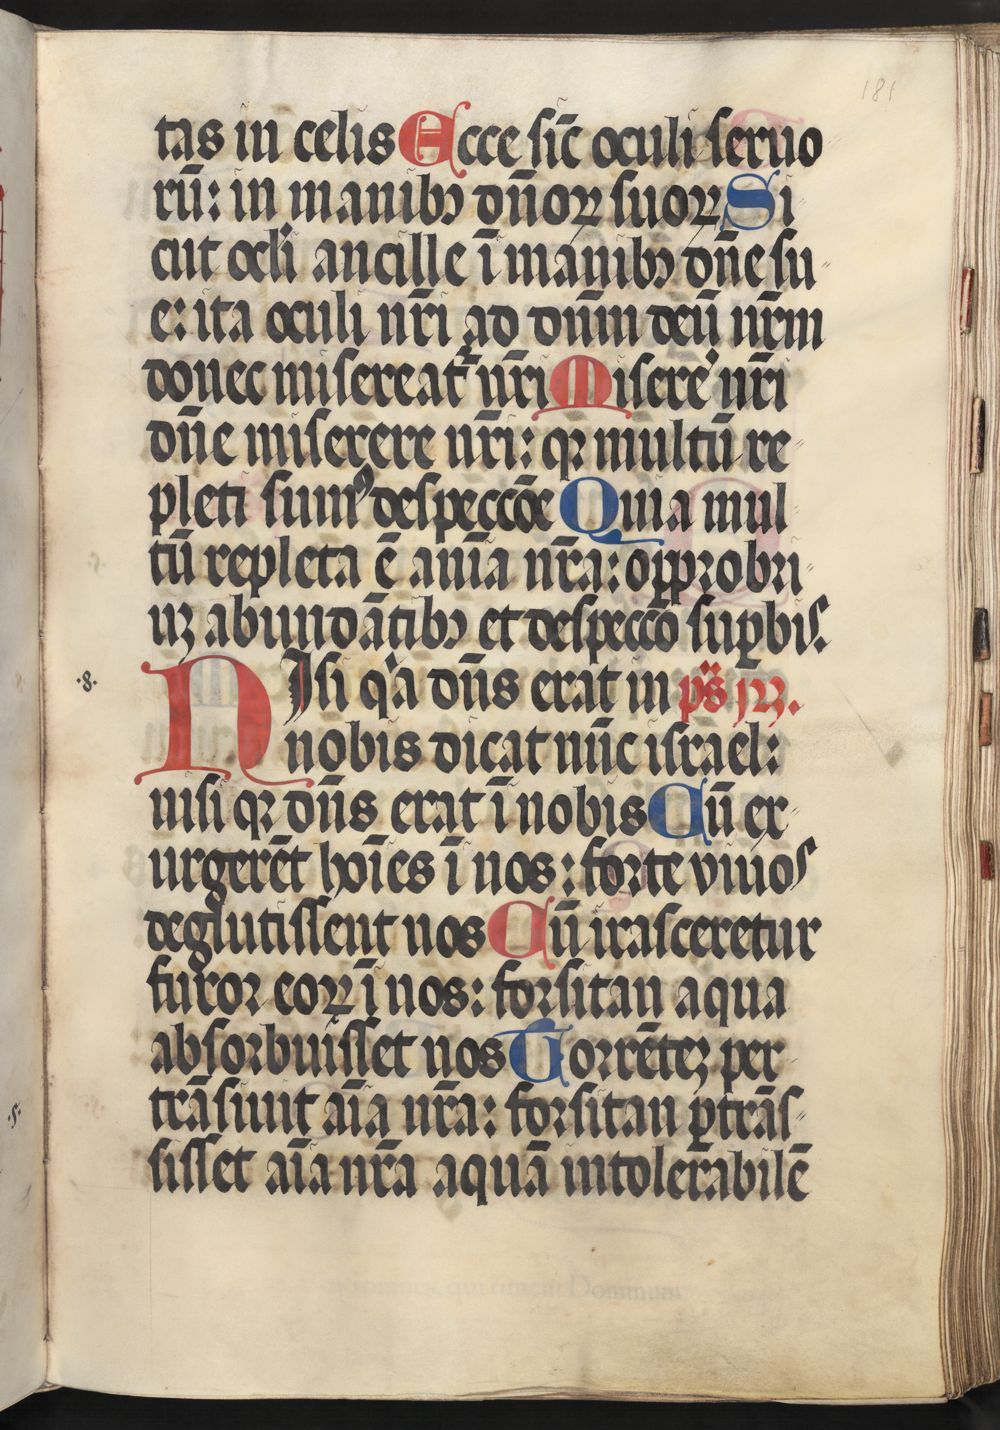 181
tas in celis Ecce sic̄ oculi seruo
rū: in manibꝫ dn̄oꝝ suoꝝ Si
cut ocl̓i ancille ī manibꝫ dn̄e su
e: ita oculi nr̄i ad dn̄m deū nr̄m
donec misereatʳ nr̄i Misere̓ nr̄i
dn̄e miserere nr̄i: qꝛ multū re
pleti sumꝰ despecc̄oe Quia mul
tū repleta ē anīa nr̄a: opprobri
uꝫ abundātibꝫ et despecc̄o suꝑbis.
.8. NIsi qͥa dn̄s erat in ps̄
nobis dicat nūc israel:
nisi qꝛ dn̄s erat ī nobis Cū ex
urgerēt hoīes ī nos: forte viuos
deglutissent nos Cū irasceretur
furor eoꝝ ī nos: forsitan aqua
absorbuisset nos Torrēteꝫ per
trāsiuit aīa nr̄a: forsitan ꝑtrās
sisset aīa nr̄a aquā intolerabilē